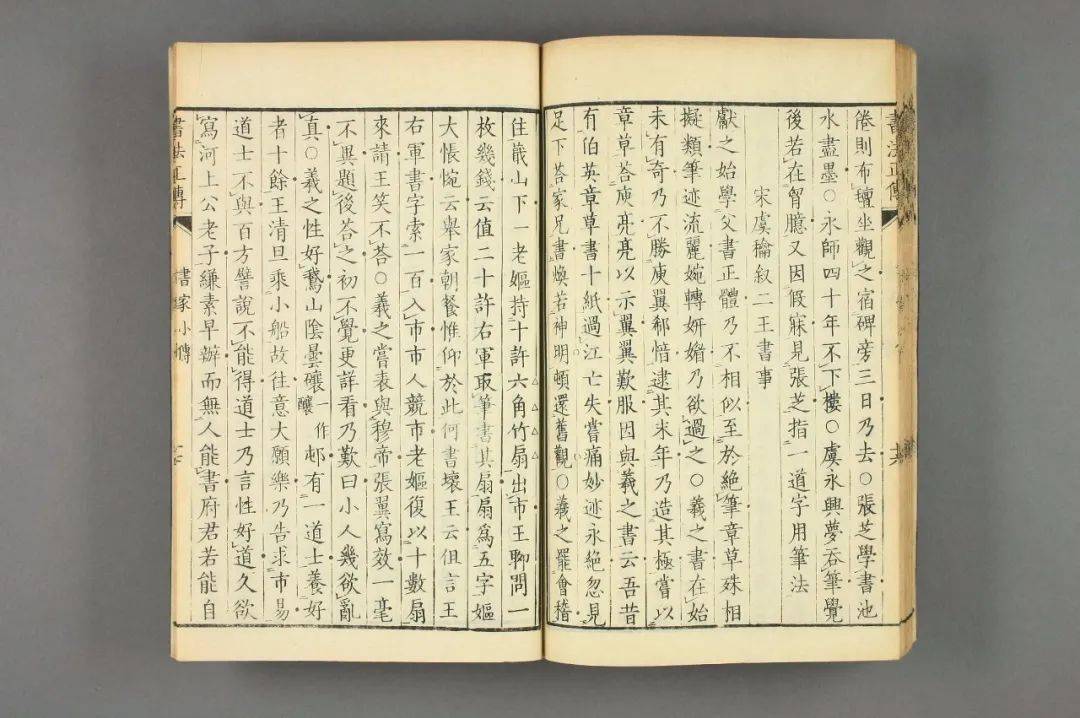 書法正傳
倦則布㲲坐觀之宿碑旁三日乃去○張芝學書池
水盡墨○永師四十年不下樓○虞永興夢吞筆覺
後若在胷臆又因假寐見張芝指一道字用筆法
宋虞龢叙二王書事
獻之始學父書正體乃不相似至於絶筆章草殊相
擬類筆迹流麗婉轉妍媚乃欲過之○羲之書在始
未有奇乃不勝庾翼郗愔逮其末年乃造其極嘗以
章草荅庾亮亮以示翼翼歎服因與羲之書云吾昔
有伯英章草書十紙過江亡失嘗痛妙迹永絶忽見
足下荅家兄書煥若神明頓還舊觀○羲之罷會稽
住蕺山下一老嫗持十許六角竹扇出市王聊問一
枚幾錢云值二十許右軍取筆書其扇扇爲五字嫗
大悵惋云舉家朝餐惟仰於此何書壞王云但言王
右軍書字索一百入市市人競市老嫗復以十數扇
來請王笑不荅○羲之嘗表與穆帝張翼寫效一毫
不異題後荅之初不覺更詳看乃歎曰小人幾欲亂
真○羲之性好鵝山陰曇礦一作釀邨有一道士養好
者十餘王清旦乘小船故往意大願樂乃告求市易
道士不與百方譬說不能得道士乃言性好道久欲
寫河上公老子縑素早辦而無人能書府君若能自
書法正傳
書家小傳